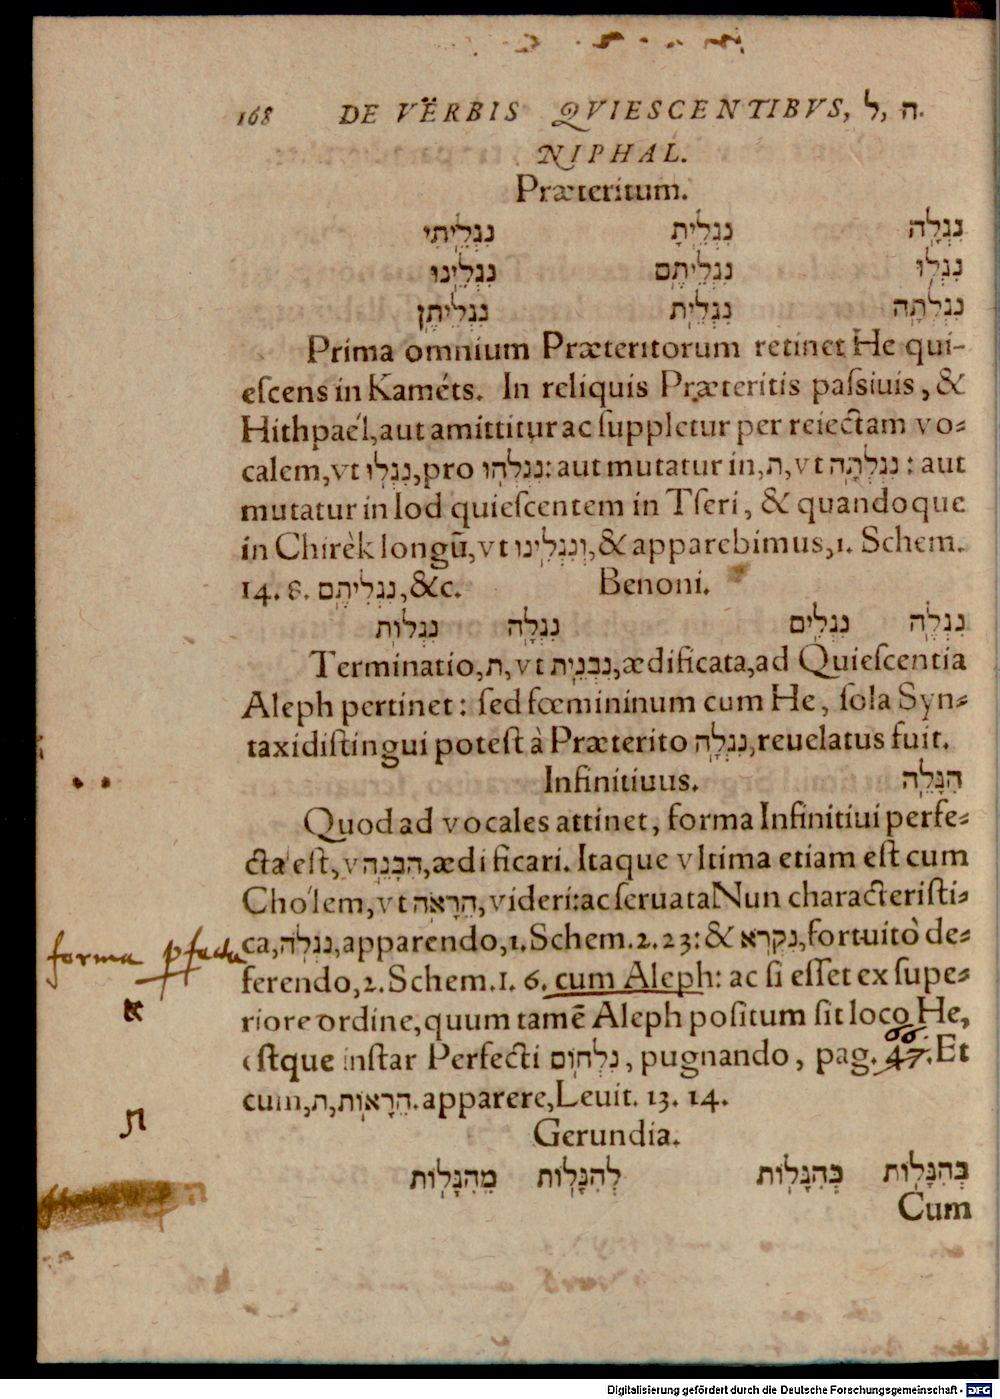 168 DE VERBIS QVIESCENTIBVS, ל, ה.
NIPHAL.
Præteritum.
נִגְלָה נִגְלֵיתָ נִגְלֵיתִי
נִגְלוּ נִגְלֵיתֶם נִגְלֵינוּ
נִגְלְתָה נִגְלֵית נִגְלֵיתֶן
Prima omnium Præteritorum retinet He qui-
eſcens in Kaméts. In reliquis Præteritis paſsiuis, &
Hithpaél, aut amittitur ac ſuppletur per reiectam vo-
calem, vt נִגְלוּ, pro נִגְלְהוּ: aut mutatur in, ת, vt נִגְלְתָה: aut
mutatur in Iod quieſcentem in Tſeri, & quandoque
in Chirèk longū, vt וְנִגְלִינוּ, & apparebimus, 1. Schem.
14. 8. נִגְלִיתֶם, &c. Benoni.
נִגְלֶה נִגְלִים נִגְלָה נִגְלוֹת
Terminatio, ת, vt נִבְנֵית, ædificata, ad Quieſcentia
Aleph pertinet: ſed fœmininum cum He, ſola Syn-
taxi diſtingui poteſt à Præterito נִגְלָה, reuelatus fuit.
Infinitiuus. הִגָּלֵה
Quod ad vocales attinet, forma Infinitiui perfe-
cta eſt, v הִבָּנֵה, ædificari. Itaque vltima etiam eſt cum
Chólem, vt הֵרָאֹה, videri: ac ſeruata Nun characteriſti-
forma pfecta
ca, נִגְלֹה, apparendo, 1. Schem. 2. 23: & נִקְרֹא, fortuitò de-
ferendo, 2. Schem. 1. 6. cum Aleph: ac ſi eſſet ex ſupe-
א
riore ordine, quum tamē Aleph poſitum ſit loco He,
66.
eſtque inſtar Perfecti נִלְחוֹם, pugnando, pag. 47. Et
cum, ת, הֵרָאוֹת. apparere, Leuit. 13. 14.
ת
Gerundia.
בְּהִגָּלוֹת כְּהִגָּלוֹת לְהִגָּלוֹת מֵהִגָּלוֹת
ה
Cum
Digitalisierung gefördert durch die Deutsche Forschungsgemeinschaft - DFG